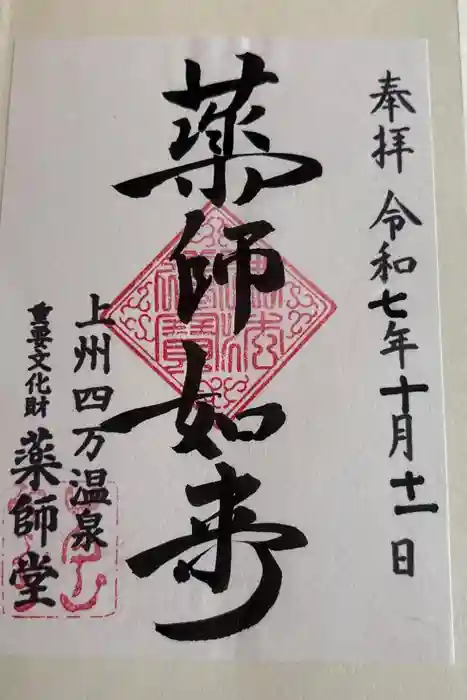 奉拝 令和七年十月十一日
薬師如来
上州四万温泉
重要文化財 薬師堂